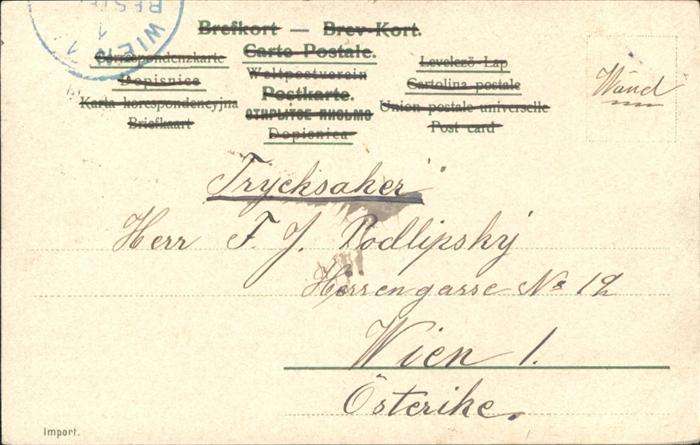 Brefkort — Brev-Kort.
Carte Postale.
Correspondenzkarte
Weltpostverein
Levelező-Lap
Dopisnice
Postkarte.
Cartolina postale
Karta korespondencyjna
Union postale universelle
Briefkaart
Dopisnica
Post card
WIEN 1
BEST
Wand
Trycksaker
Herr F. J. Podlipský
Herrengasse No 12
Wien 1.
Österike.
Import.